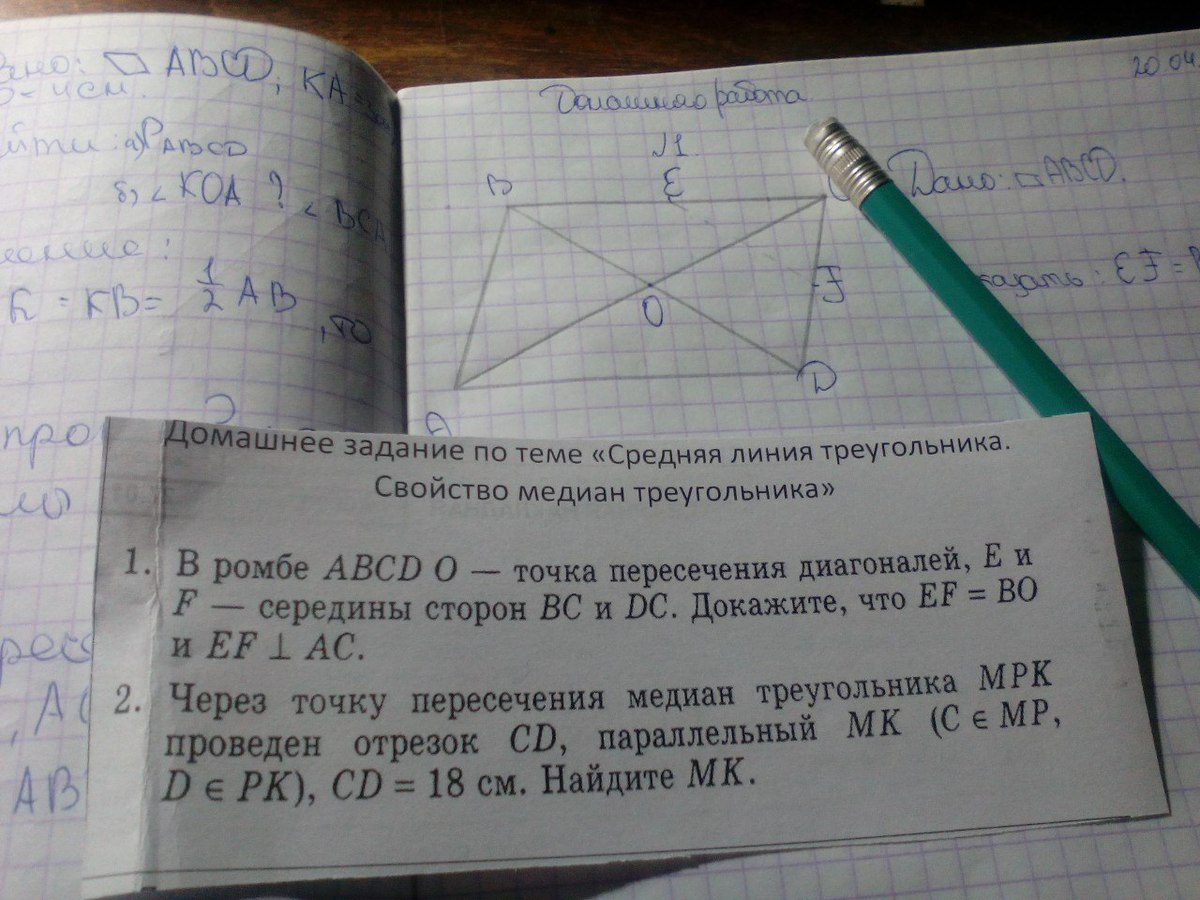 ABCD, KA
ABCD
б) < KOA ?
< BCA
K = KB = 1/2 AB
, то
AB
20.04
Домашняя работа
№1.
B E
Дано: ▱ ABCD.
F
O
D
A
казать: EF =
Домашнее задание по теме «Средняя линия треугольника.
Свойство медиан треугольника»
1. В ромбе ABCD O — точка пересечения диагоналей, E и
F — середины сторон BC и DC. Докажите, что EF = BO
и EF ⊥ AC.
2. Через точку пересечения медиан треугольника MPK
проведен отрезок CD, параллельный MK (C ∈ MP,
D ∈ PK), CD = 18 см. Найдите MK.